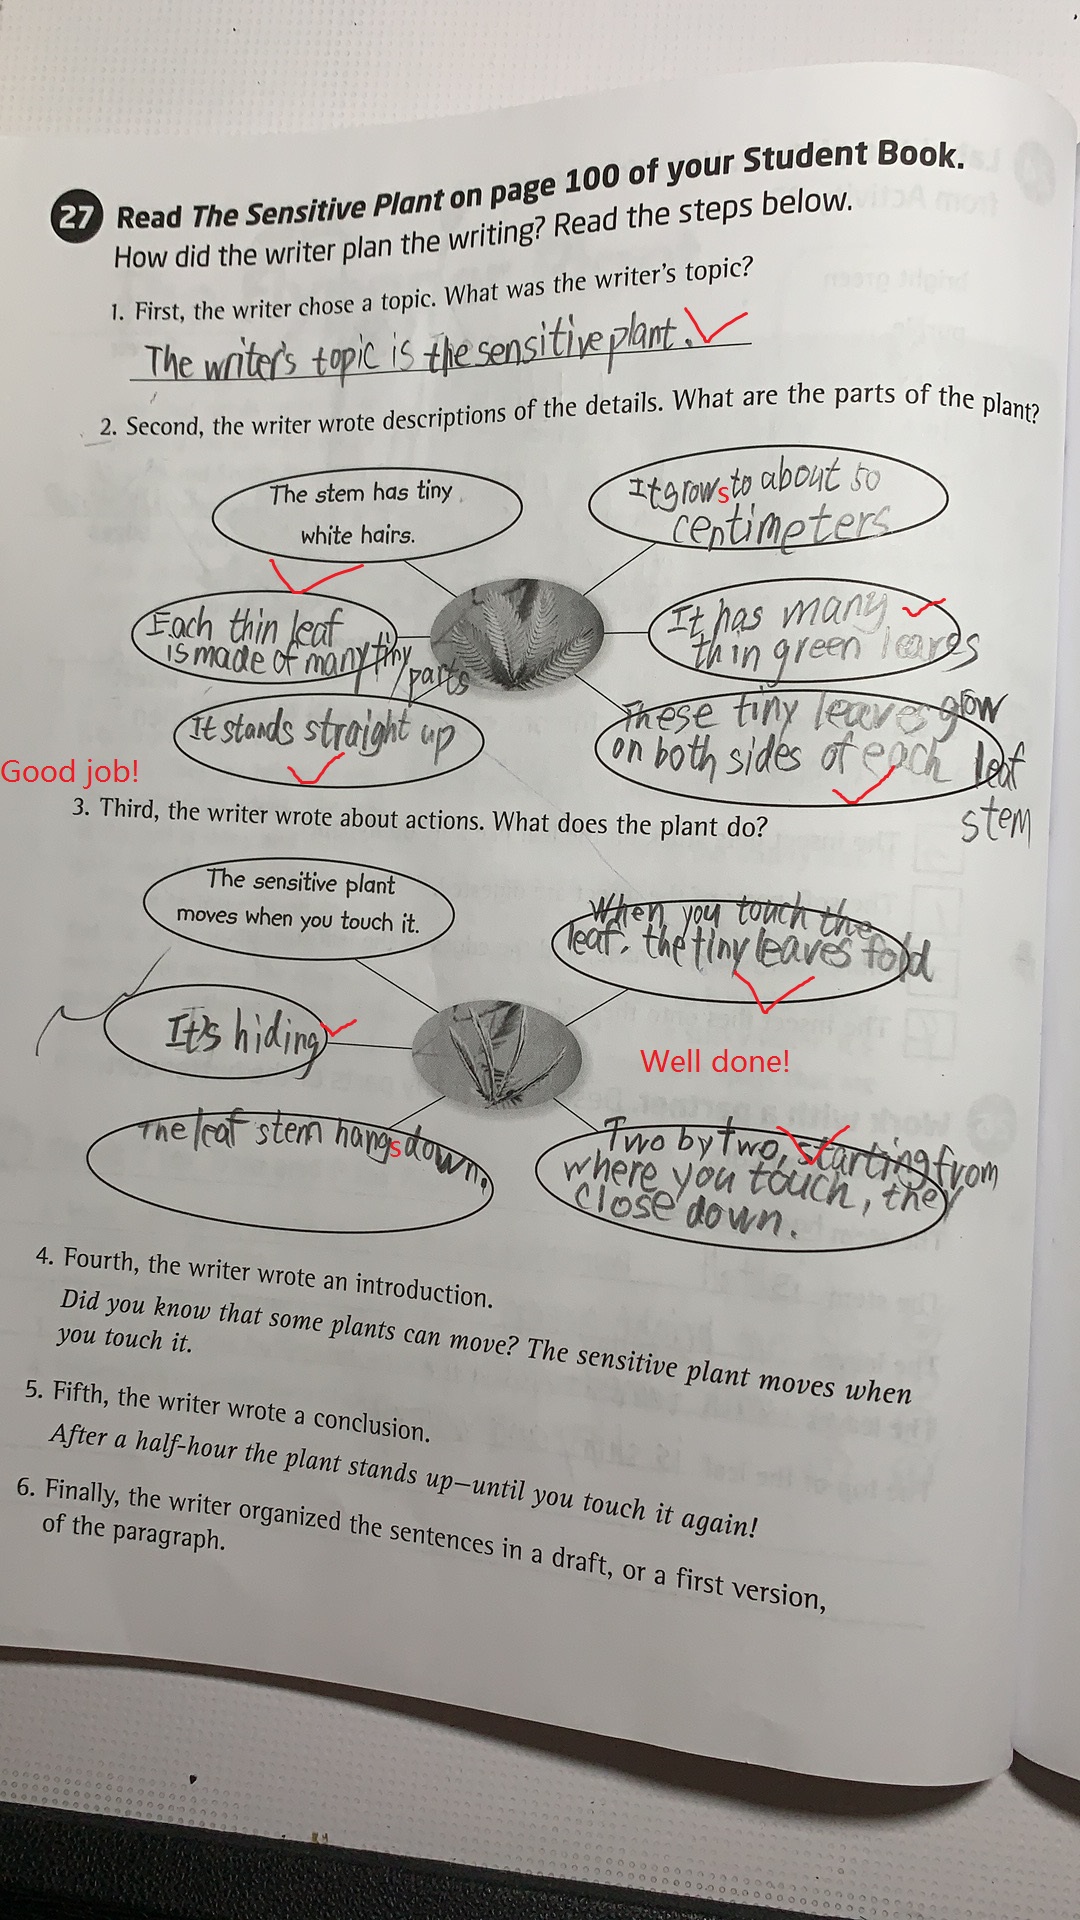 27 Read The Sensitive Plant on page 100 of your Student Book.
How did the writer plan the writing? Read the steps below.
1. First, the writer chose a topic. What was the writer's topic?
The writer's topic is the sensitive plant.
2. Second, the writer wrote descriptions of the details. What are the parts of the plant?
The stem has tiny
white hairs.
It grows to about 50
centimeters
Each thin leaf
is made of many tiny
parts
It has many
thin green leaves
It stands straight up
These tiny leaves grow
on both sides of each leaf
stem
Good job!
3. Third, the writer wrote about actions. What does the plant do?
The sensitive plant
moves when you touch it.
When you touch the
leaf, the tiny leaves fold
It's hiding
Well done!
The leaf stem hangs down.
Two by two, starting from
where you touch, they
close down.
4. Fourth, the writer wrote an introduction.
Did you know that some plants can move? The sensitive plant moves when
you touch it.
5. Fifth, the writer wrote a conclusion.
After a half-hour the plant stands up—until you touch it again!
6. Finally, the writer organized the sentences in a draft, or a first version,
of the paragraph.